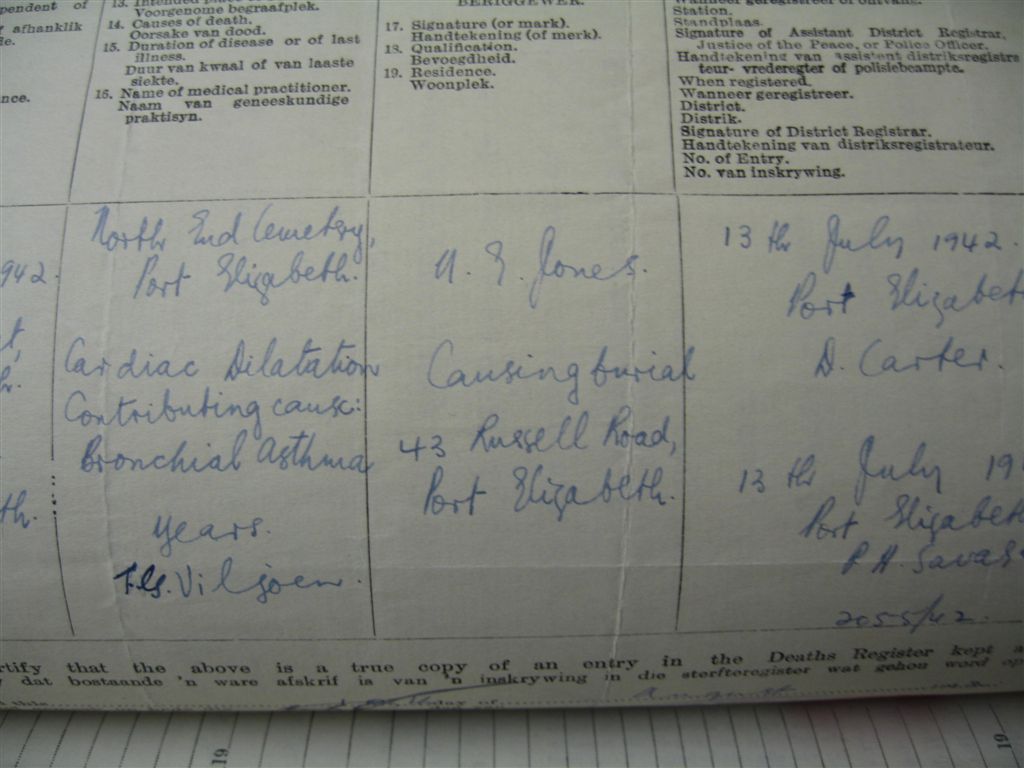 pendent of
afhanklik
nce.
Voorgenome begraafplek.
14. Causes of death.
Oorsake van dood.
15. Duration of disease or of last
illness.
Duur van kwaal of van laaste
siekte.
16. Name of medical practitioner.
Naam van geneeskundige
praktisyn.
BERIGGEWER.
17. Signature (or mark).
Handtekening (of merk).
18. Qualification.
Bevoegdheid.
19. Residence.
Woonplek.
Station.
Standplaas.
Signature of Assistant District Registrar,
Justice of the Peace, or Police Officer.
Handtekening van assistent distriksregistra
teur- vrederegter of polisiebeampte.
When registered.
Wanneer geregistreer.
District.
Distrik.
Signature of District Registrar.
Handtekening van distriksregistrateur.
No. of Entry.
No. van inskrywing.
942.
th.
North End Cemetery,
Port Elizabeth.
Cardiac Dilatation
Contributing cause:
Bronchial Asthma
years.
Viljoen.
E. Jones.
Causing burial
43 Russell Road,
Port Elizabeth.
13 th July 1942.
Port Elizabet
D. Carter.
13 th July 19
Port Elizabeth
P. H. Savag
2055/42.
rtify that the above is a true copy of an entry in the Deaths Register kept a
dat bostaande 'n ware afskrif is van 'n inskrywing in die sterfteregister wat gehou word op
19
19